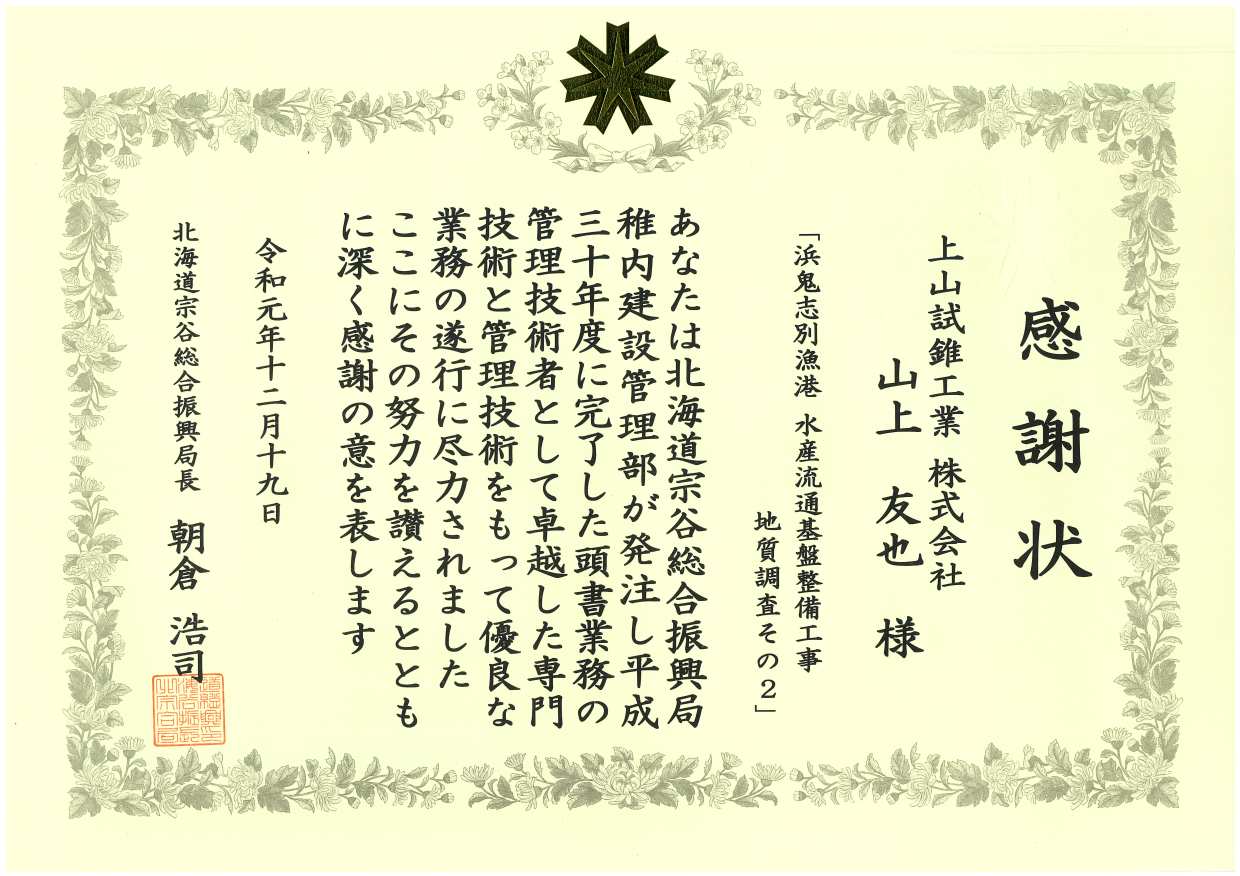 感謝状
上山試錐工業 株式会社
山上 友也 様
「浜鬼志別漁港 水産流通基盤整備工事
地質調査その2」
あなたは北海道宗谷総合振興局
稚内建設管理部が発注し平成
三十年度に完了した頭書業務の
管理技術者として卓越した専門
技術と管理技術をもって優良な
業務の遂行に尽力されました
ここにその努力を讃えるととも
に深く感謝の意を表します
令和元年十二月十九日
北海道宗谷総合振興局長 朝倉 浩司